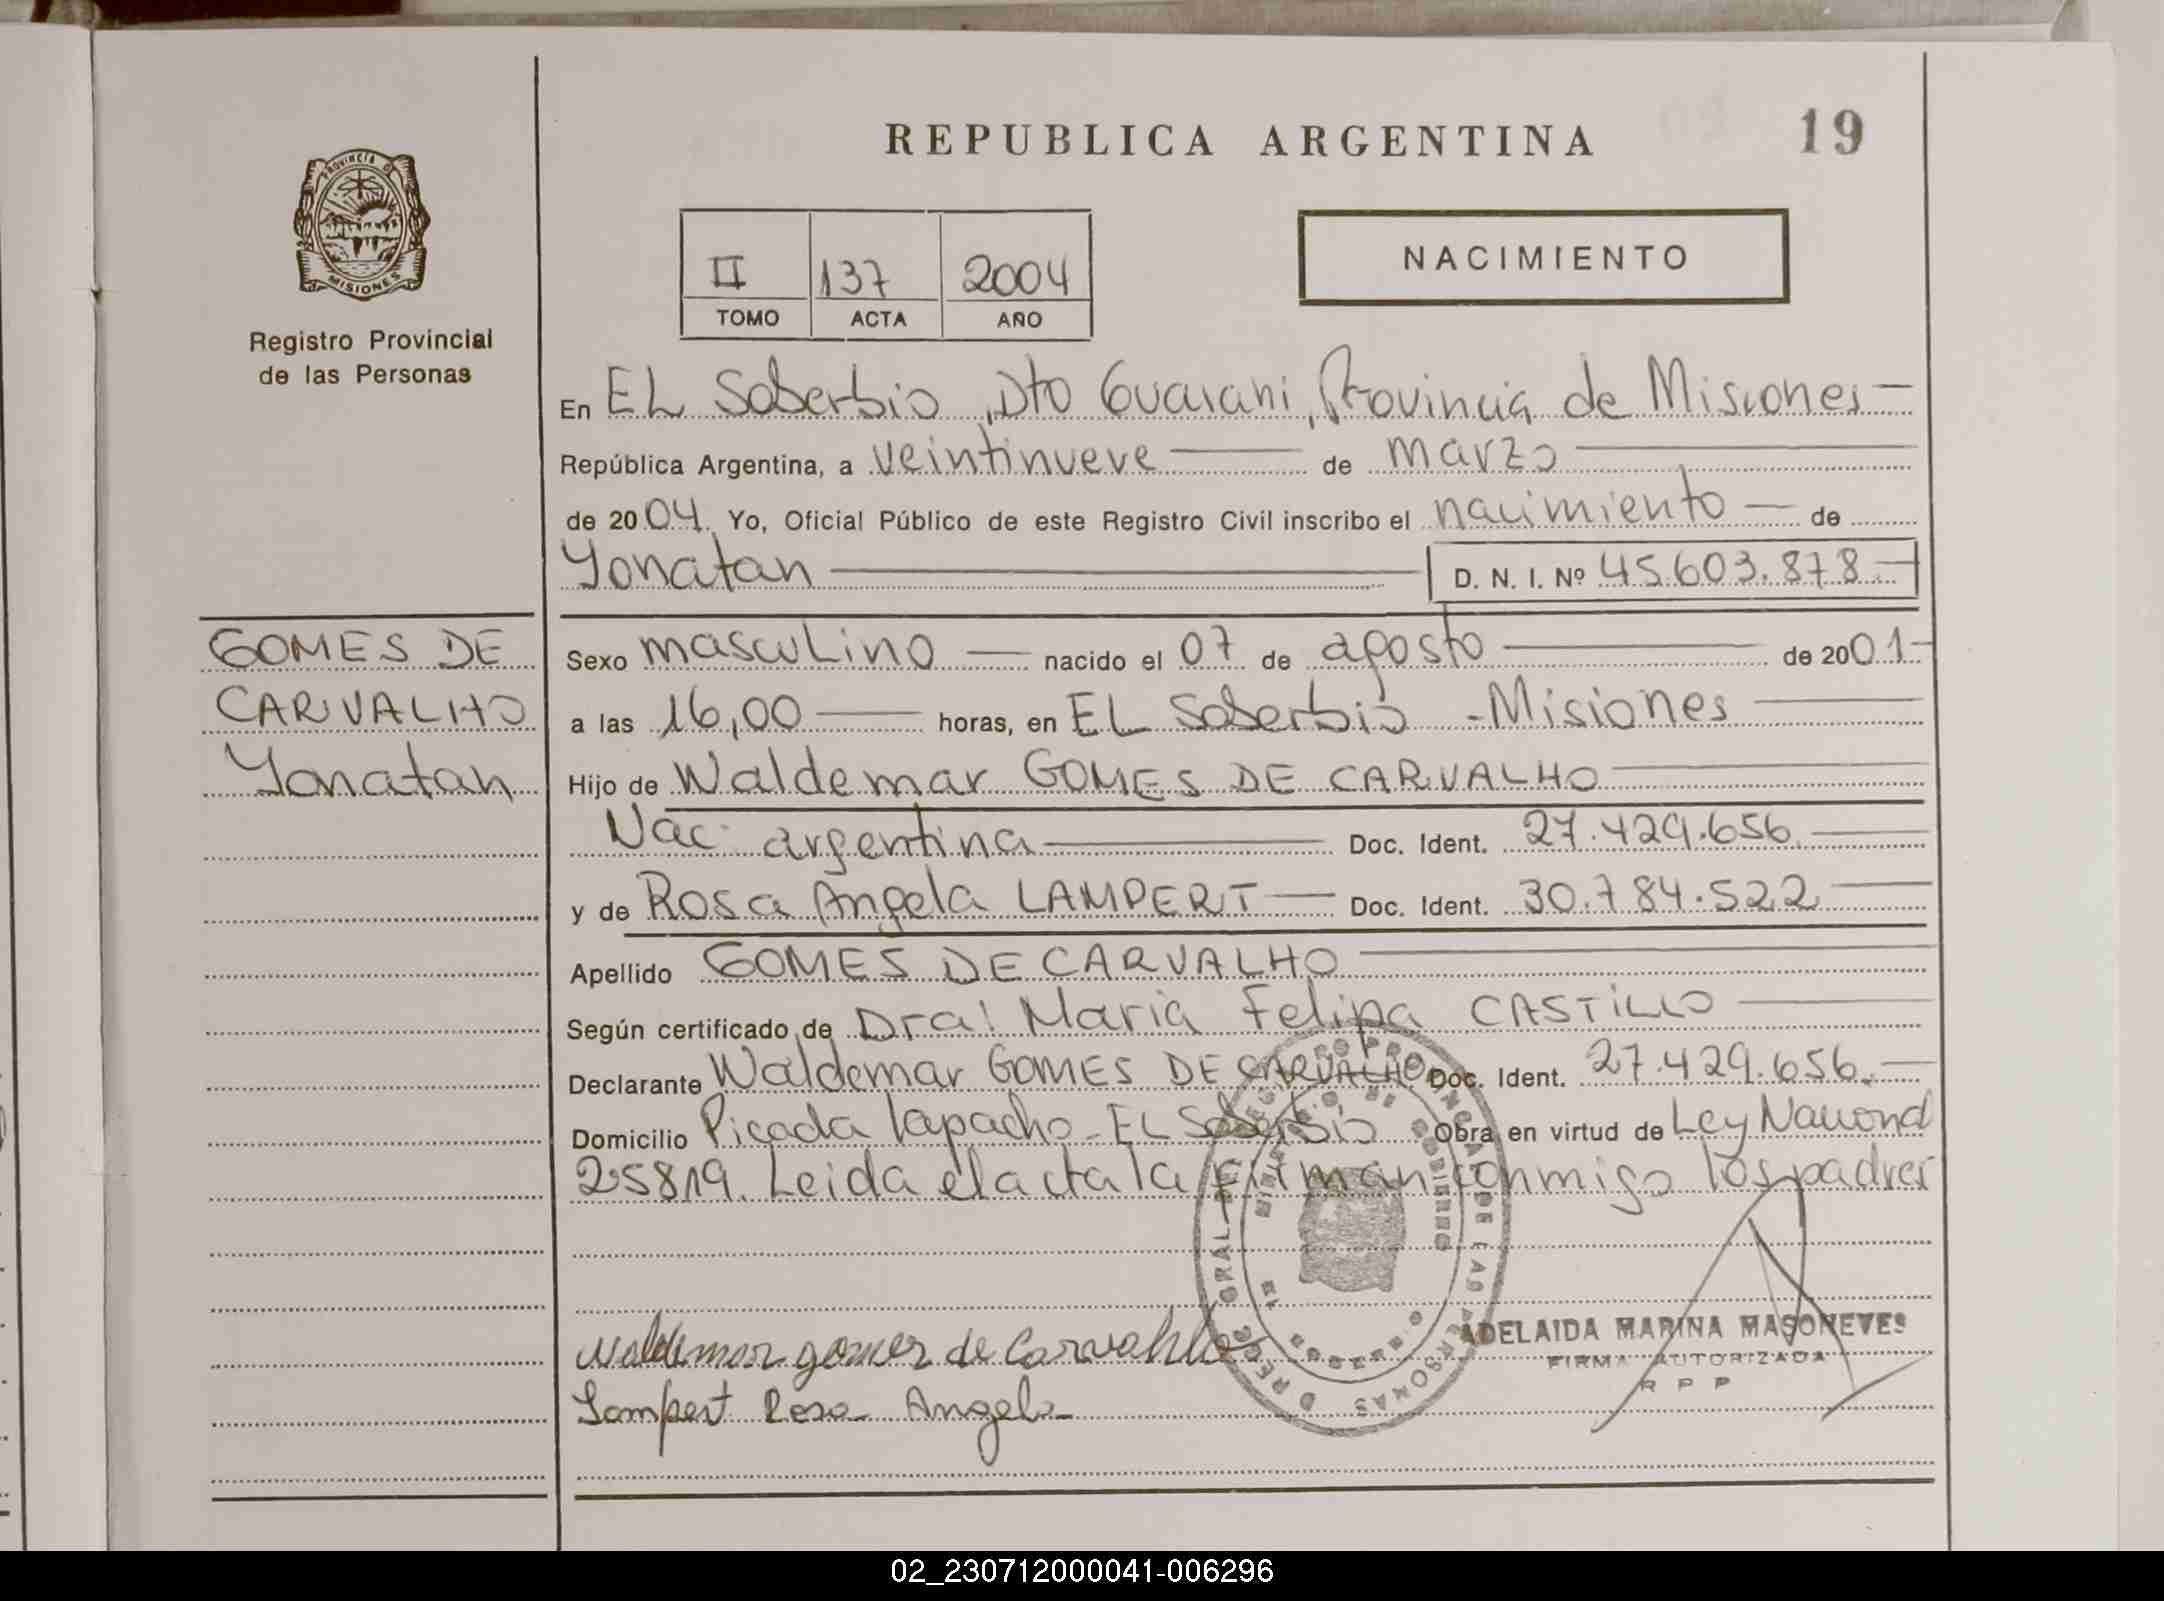 REPUBLICA ARGENTINA
19
PROVINCIA D
MISIONES
Registro Provincial
de las Personas
II 137 2004
TOMO ACTA AÑO
NACIMIENTO
En EL Soberbio, Dto Guarani, Provincia de Misiones
República Argentina, a veintinueve de marzo
de 2004 Yo, Oficial Público de este Registro Civil inscribo el nacimiento de
Yonatan D. N. I. Nº 45.603.878
GOMES DE
CARVALHO
Yonatan
Sexo masculino nacido el 07 de agosto de 2001
a las 16,00 horas, en EL Soberbio - Misiones
Hijo de Waldemar GOMES DE CARVALHO
Nac. argentina Doc. Ident. 27.429.656
y de Rosa Angela LAMPERT Doc. Ident. 30.784.522
Apellido GOMES DE CARVALHO
Según certificado de Dra: Maria Felipa CASTILLO
Declarante Waldemar GOMES DE CARVALHO Doc. Ident. 27.429.656
Domicilio Picada Lapacho - EL Soberbio Obra en virtud de Ley Nacional
25819. Leida el acta la firman conmigo los padres
Waldemar gomes de Carvahlho
Lampert Rosa Angela
ADELAIDA MARINA MASONEVES
FIRMA AUTORIZADA
R P P
02_230712000041-006296